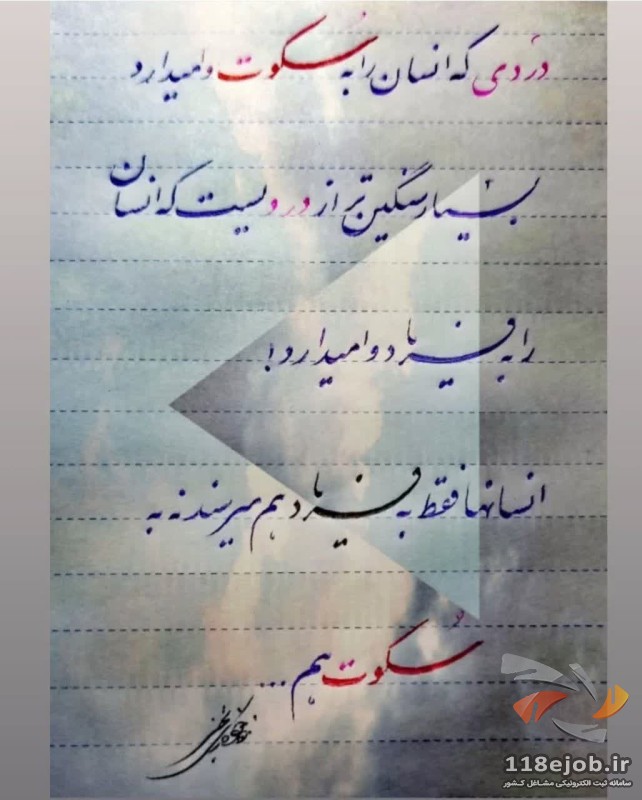 دردی که انسان را به سکوت وامیدارد
بسیار سنگین تر از دردیست که انسان
را به فریاد وامیدارد!
انسانها فقط به فریاد هم میرسند نه به
سکوت هم ...
118ejob.ir
سامانه ثبت الکترونیکی مشاغل کشور